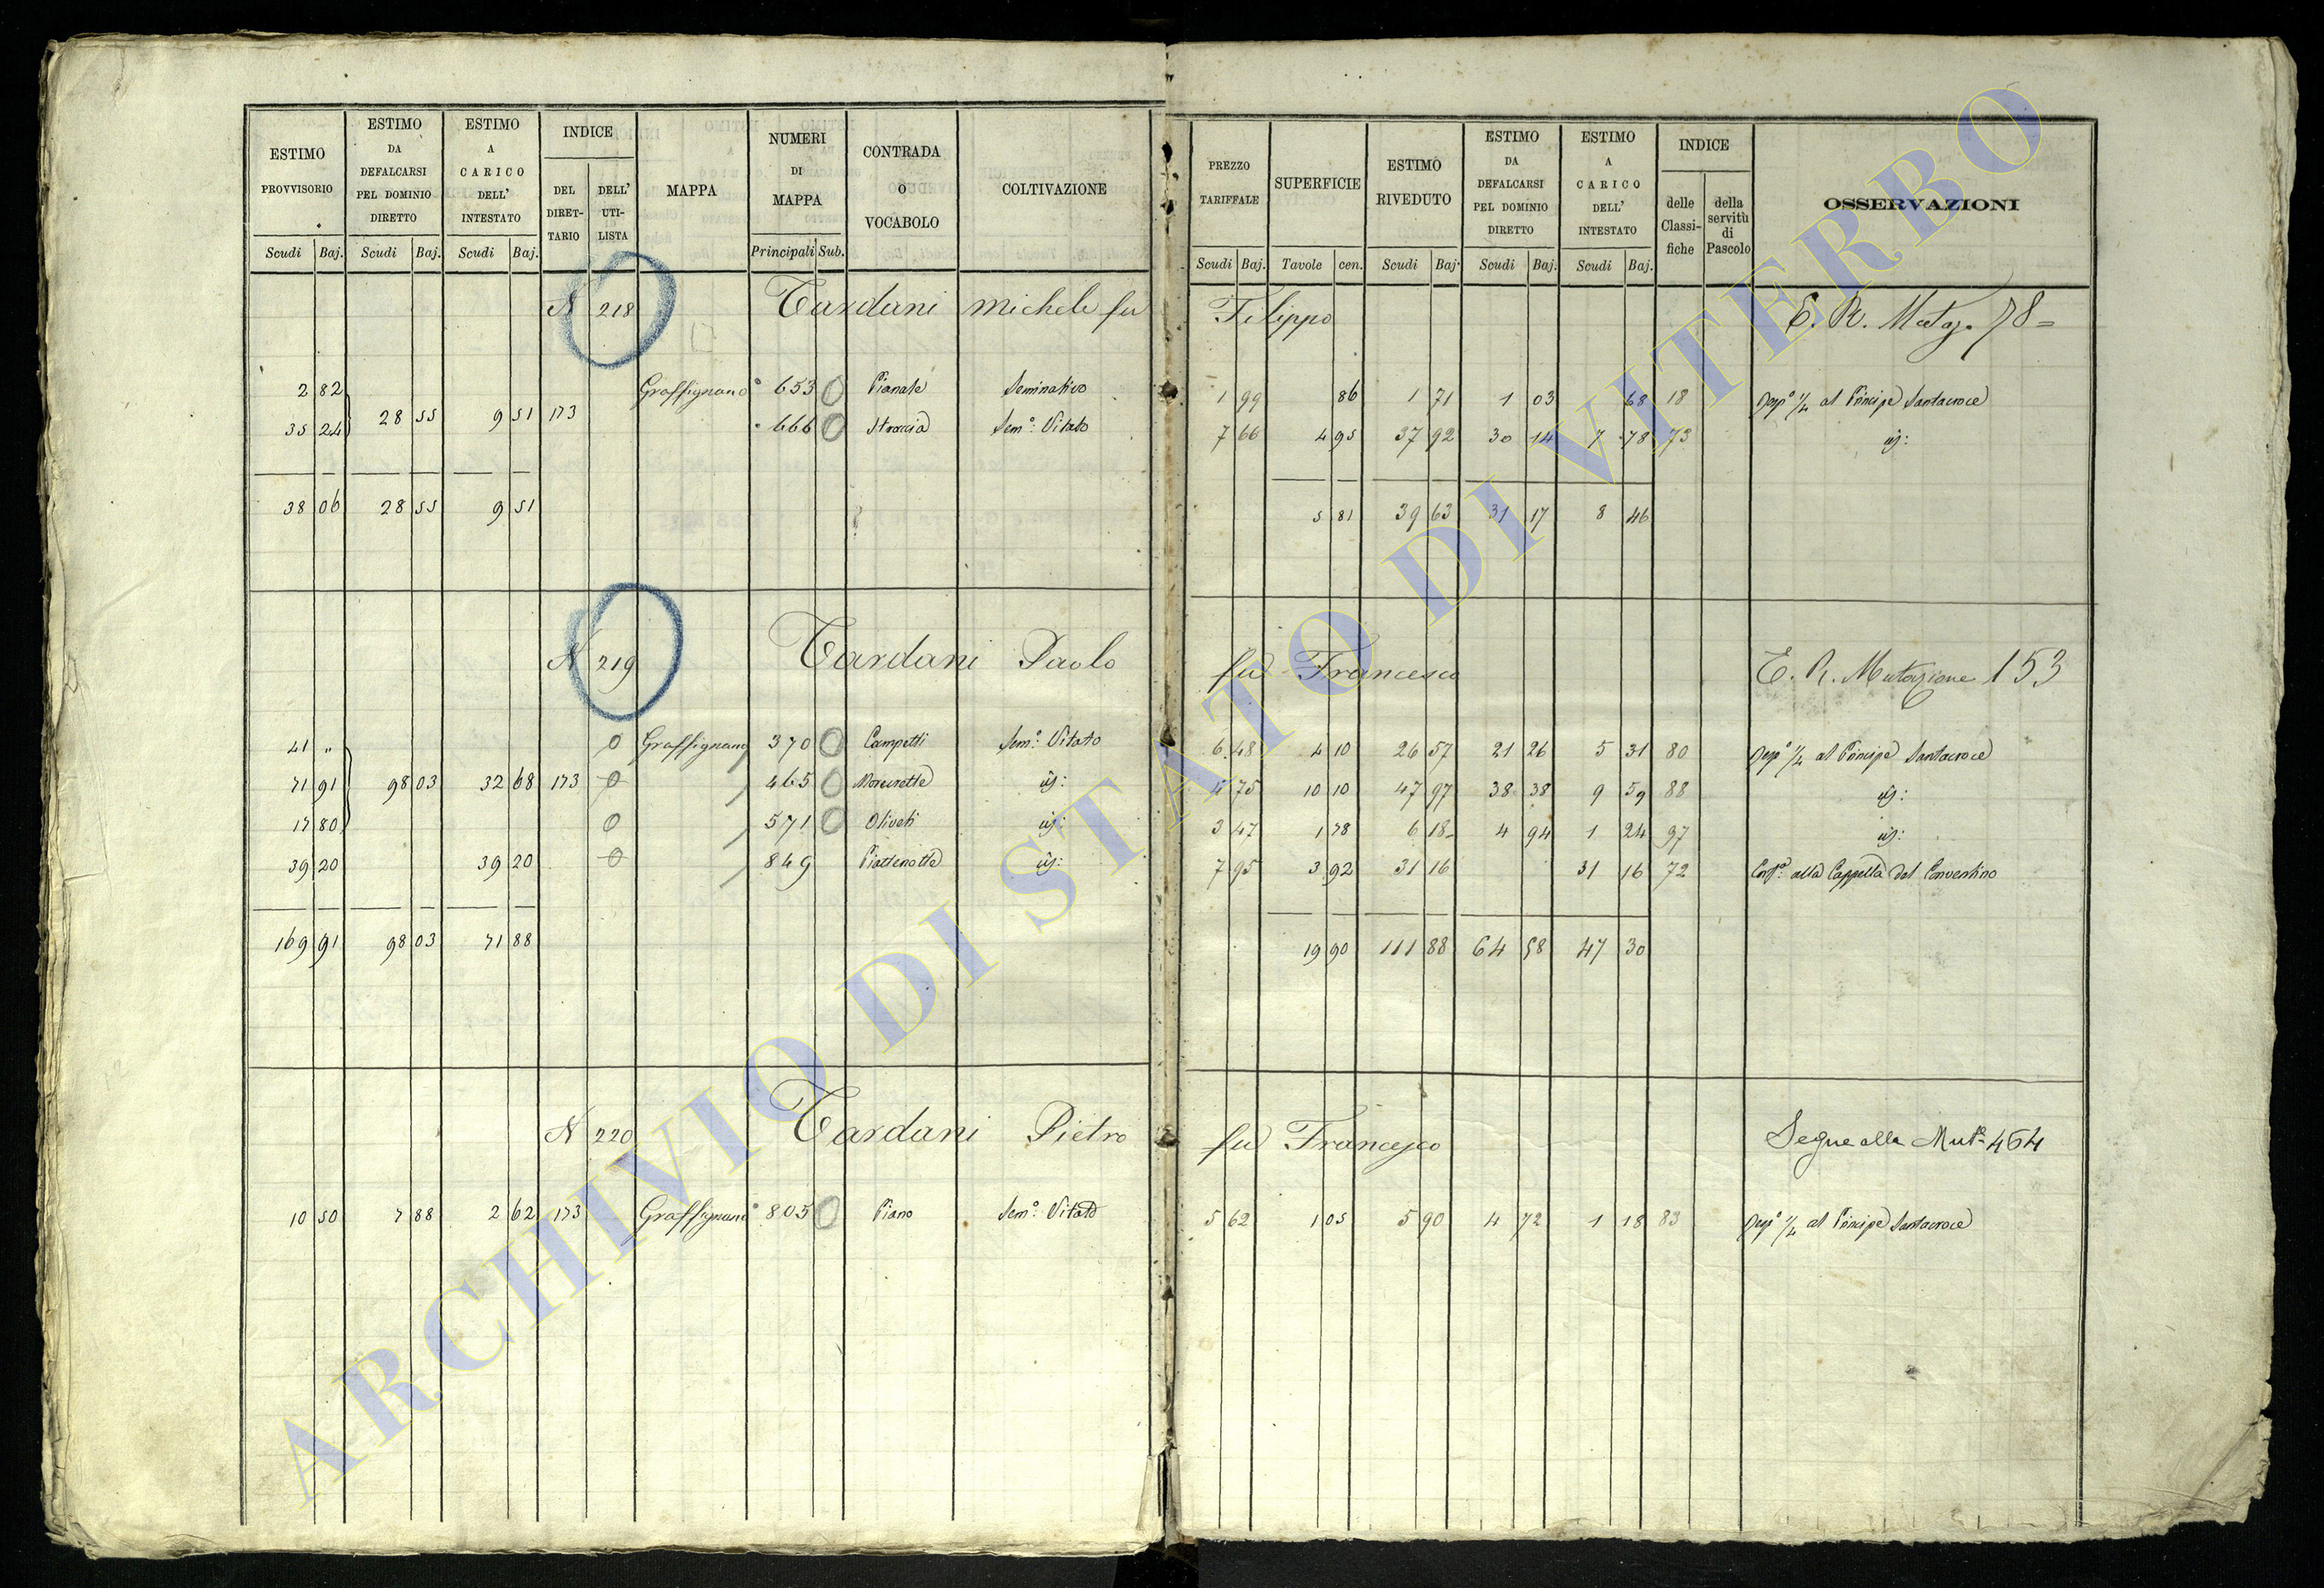 ESTIMO PROVVISORIO Scudi Baj.
ESTIMO DA DEFALCARSI PEL DOMINIO DIRETTO Scudi Baj.
ESTIMO A CARICO DELL' INTESTATO Scudi Baj.
INDICE DEL DIRET-TARIO DELL' UTI-LISTA
MAPPA
NUMERI DI MAPPA Principali Sub.
CONTRADA O VOCABOLO
COLTIVAZIONE
PREZZO TARIFFALE Scudi Baj.
SUPERFICIE Tavole cen.
ESTIMO RIVEDUTO Scudi Baj.
ESTIMO DA DEFALCARSI PEL DOMINIO DIRETTO Scudi Baj.
ESTIMO A CARICO DELL' INTESTATO Scudi Baj.
INDICE delle Classi-fiche della servitù di Pascolo
OSSERVAZIONI
N 218 Tardani Michele fu Filippo E. R. Mutaz. 78=
2 82 Graffignano 653 Pianale Seminativo 1 99 86 1 71 1 03 68 18 1/4 al Principe Santacroce
28 55 9 51 173
35 24 666 Semo: Vitato 7 66 4 95 37 92 30 14 7 78 73
38 06 28 55 9 51 5 81 39 63 31 17 8 46
N 219 Tardani Paolo fu Francesco E. R. Mutazione 153
41 " 0 Graffignano 370 Campetti Semo: Vitato 6 48 4 10 26 57 21 26 5 31 80 1/4 al Principe Santacroce
71 91 98 03 32 68 173 0 465 4 75 10 10 47 97 38 38 9 59 88
17 80 0 571 Oliveti 3 47 1 78 6 18 4 94 1 24 97
39 20 39 20 0 849 7 95 3 92 31 16 31 16 72 alla Cappella del Conventino
169 91 98 03 71 88 19 90 111 88 64 58 47 30
N 220 Tardani Pietro fu Francesco Segue alla Muta 464
10 50 7 88 2 62 173 Graffignano 805 Piano Semo: Vitato 5 62 1 05 5 90 4 72 1 18 83 1/4 al Principe Santacroce
ARCHIVIO DI STATO DI VITERBO